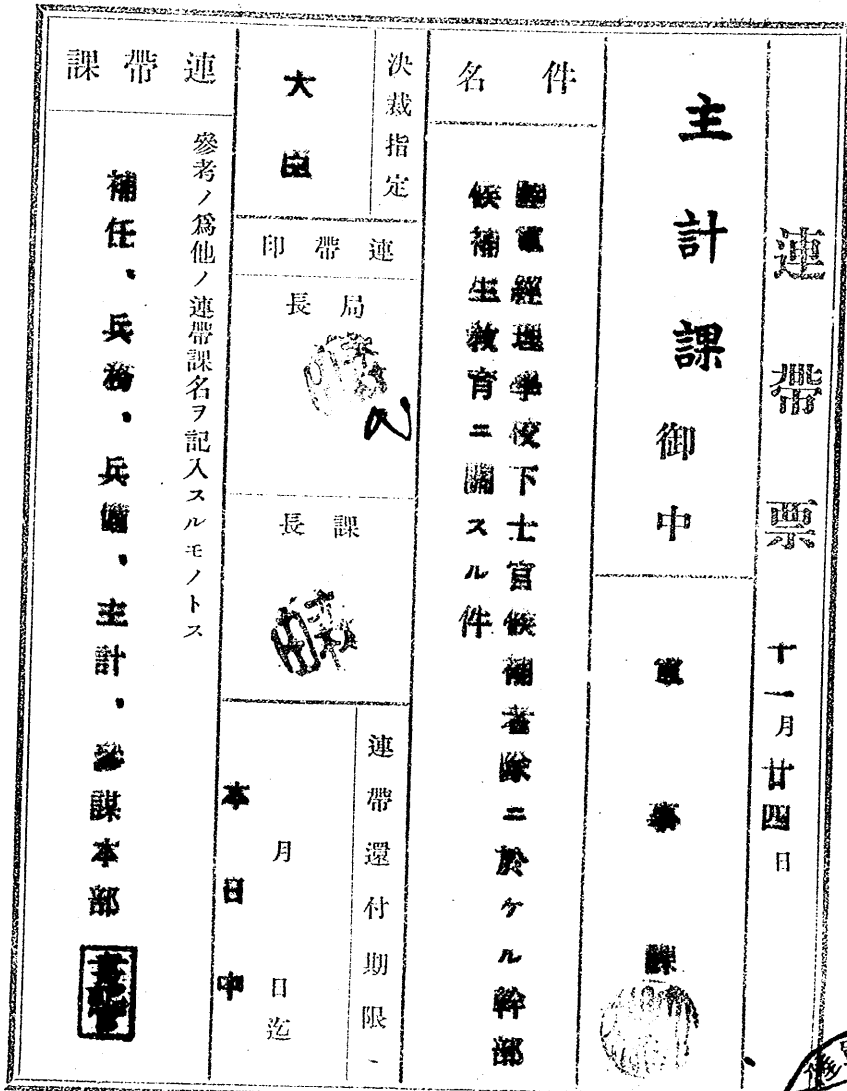 連帶票 十一月廿四日
主計課御中
軍事課
件名
陸軍經理學校下士官候補者隊ニ於ケル幹部
候補生教育ニ關スル件
決裁指定
大臣
連帶印
局長
課長
連帶還付期限
月 日迄
本日中
連帶課
參考ノ爲他ノ連帶課名ヲ記入スルモノトス
補任、兵務、兵備、主計、參謀本部